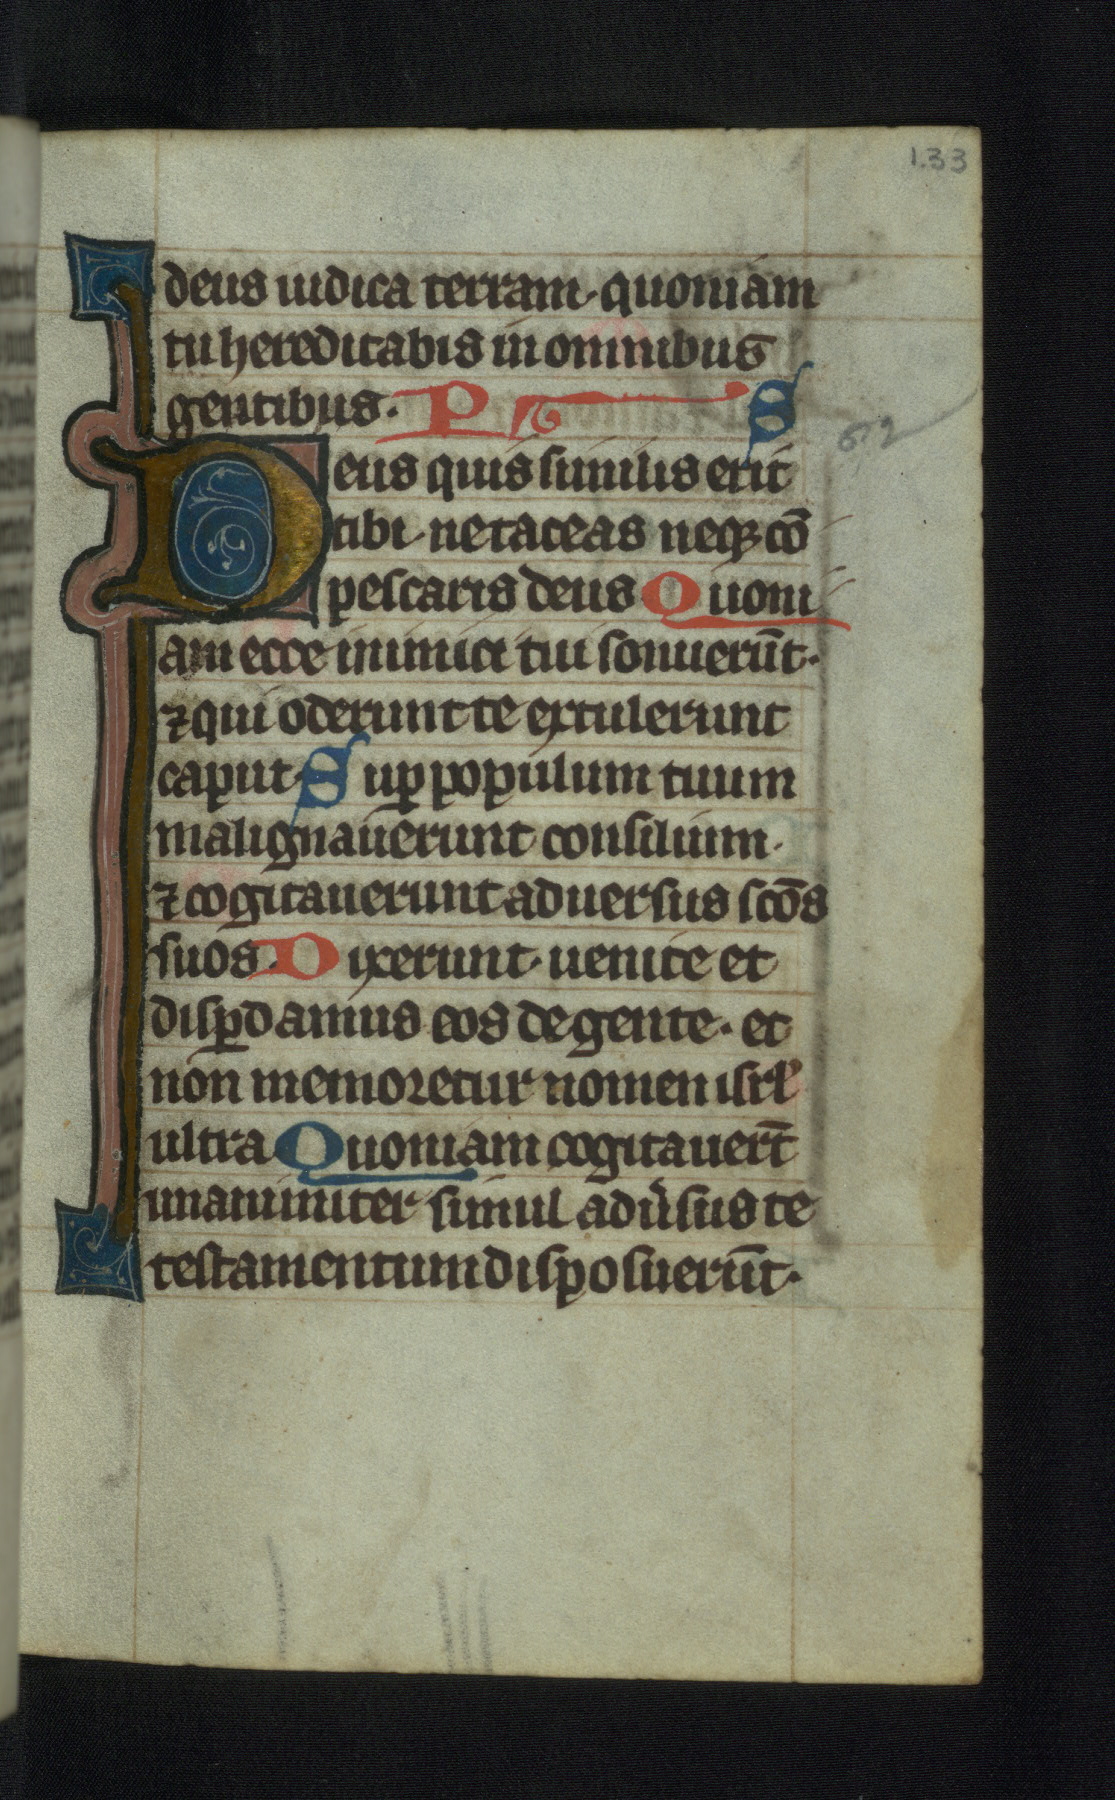 133
deus iudica terram. quoniam
tu hereditabis in omnibus
gentibus. P S
82
Deus quis similis erit
tibi. ne taceas neqꝫ cō
pescaris deus Quoni
am ecce inimici tui sonuerūt.
⁊ qui oderunt te extulerunt
caput. Suꝑ populum tuum
malignauerunt consilium.
⁊ cogitauerunt aduersus scōs
suos. Dixerunt. uenite et
disꝑdamus eos de gente. et
non memoretur nomen isrl̛
ultra Quoniam cogitauer̄t
unanimiter simul aduͥsus te
testamentum disposuerūt.